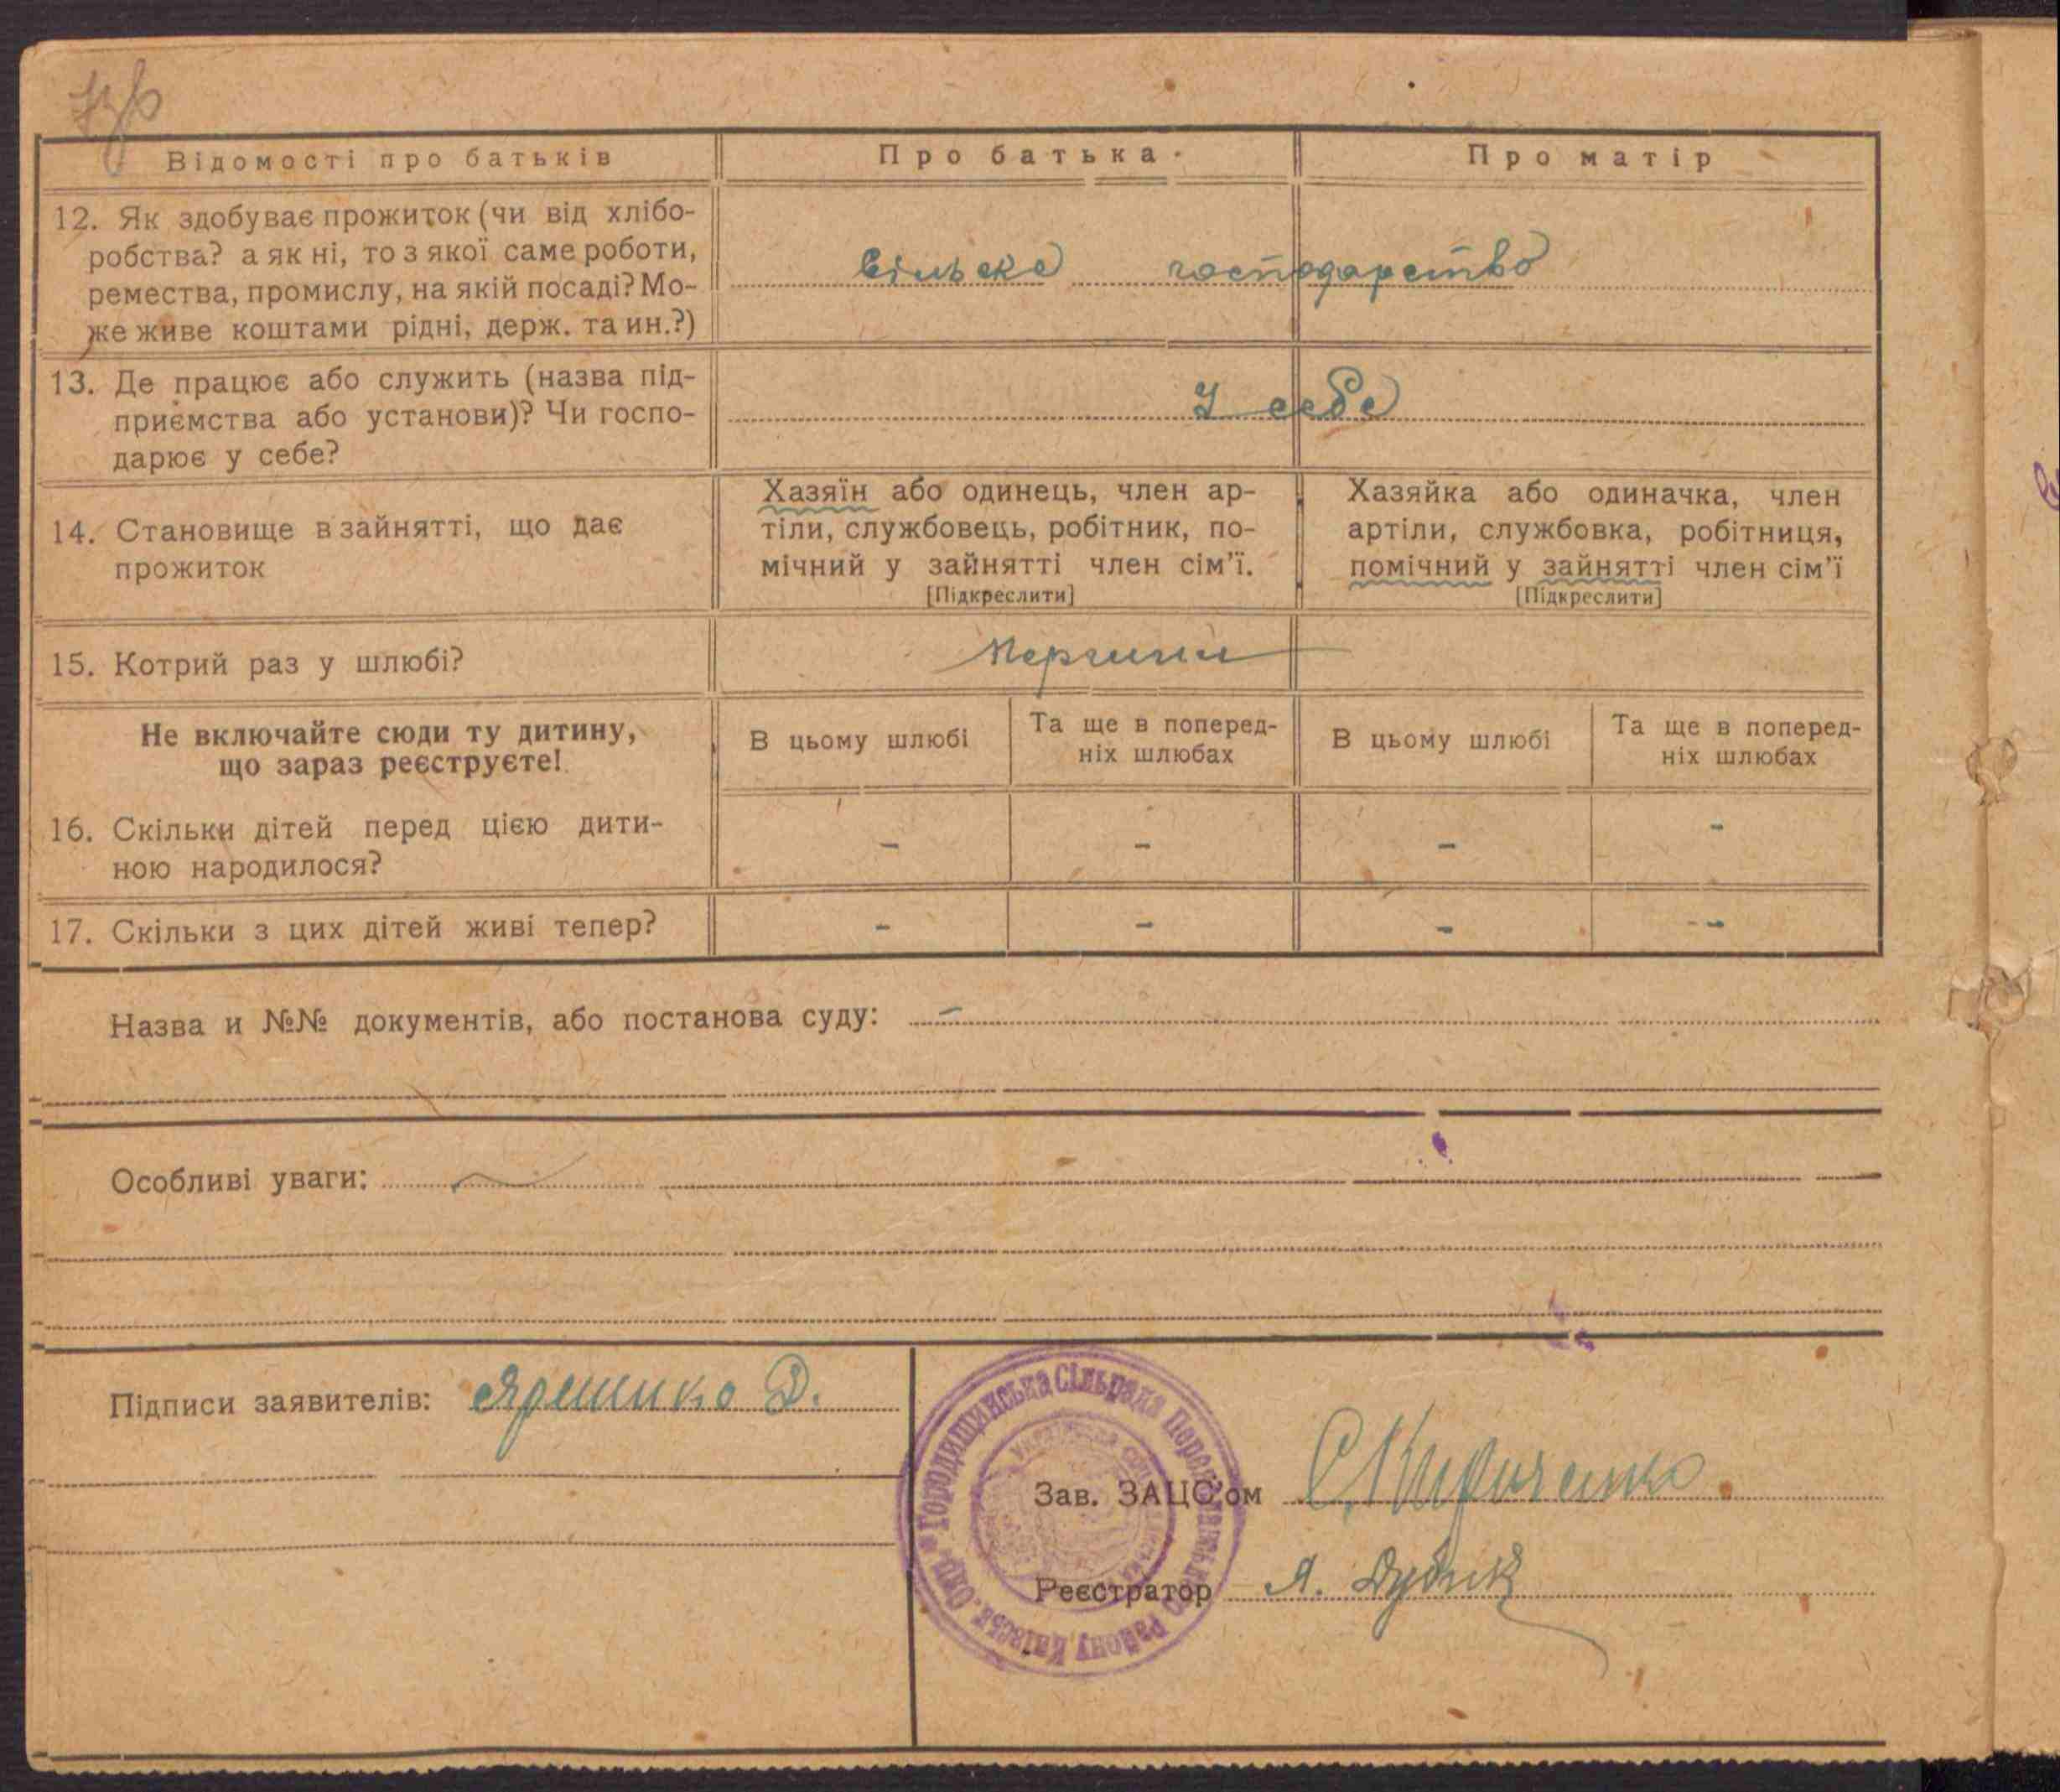 Відомості про батьків
Про батька
Про матір
12. Як здобуває прожиток (чи від хлібо-
робства? а як ні, то з якої саме роботи,
ремества, промислу, на якій посаді? Мо-
же живе коштами рідні, держ. та ин.?)
Сільске господарство
13. Де працює або служить (назва під-
приємства або установи)? Чи госпо-
дарює у себе?
У себе
14. Становище в зайнятті, що дає
прожиток
Хазяїн або одинець, член ар-
тіли, службовець, робітник, по-
мічний у зайнятті член сім’ї.
[Підкреслити]
Хазяйка або одиначка, член
артіли, службовка, робітниця,
помічний у зайнятті член сім’ї
[Підкреслити]
15. Котрий раз у шлюбі?
Не включайте сюди ту дитину,
що зараз реєструєте!
В цьому шлюбі
Та ще в поперед-
ніх шлюбах
В цьому шлюбі
Та ще в поперед-
ніх шлюбах
16. Скільки дітей перед цією дити-
ною народилося?
- - - -
17. Скільки з цих дітей живі тепер?
- - - -
Назва и №№ документів, або постанова суду: -
Особливі уваги:
Підписи заявителів: Ярешко Д.
Городищинська Сільрада Переяславського Району Київськ. Окр.
Зав. ЗАЦС’ом С. Кириченко
Реєстратор А. Дубик